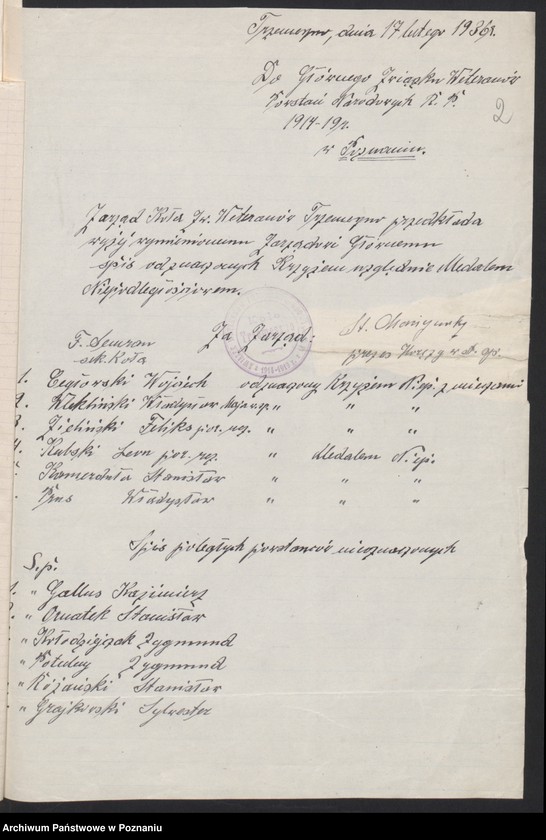 Trzemeszno, dnia 17 lutego 1936r.
Do Głównego Związku Weteranów
Powstań Narodowych R. P.
1914-19r.
w Poznaniu.
2
Zarząd Koła Zw. Weteranów Trzemeszno przedkłada
wyżej wymienionemu Zarządowi Głównemu
spis odznaczonych Krzyżem względnie Medalem
Niepodległościowem.
Za Zarząd:
sek. Koła
St.
prezes
1. Cegiorski Wojciech odznaczony Krzyżem Niep. z mieczami
2. Klekliński Władysław " " "
3. Zieliński Feliks por. rez. " " "
4. Kubski Leon por. rez. " Medalem Niep.
Kamerduła Stanisław " " "
Prus Władysław " " "
Spis poległych powstańców nieoznaczonych
Ś.p.
1. " Gallus Kazimierz
" Ornatek Stanisław
" Kłodziejczak Zygmund
" Zygmund
" Różański Stanisław
" Grajkowski Sylvester
Archiwum Państwowe w Poznaniu